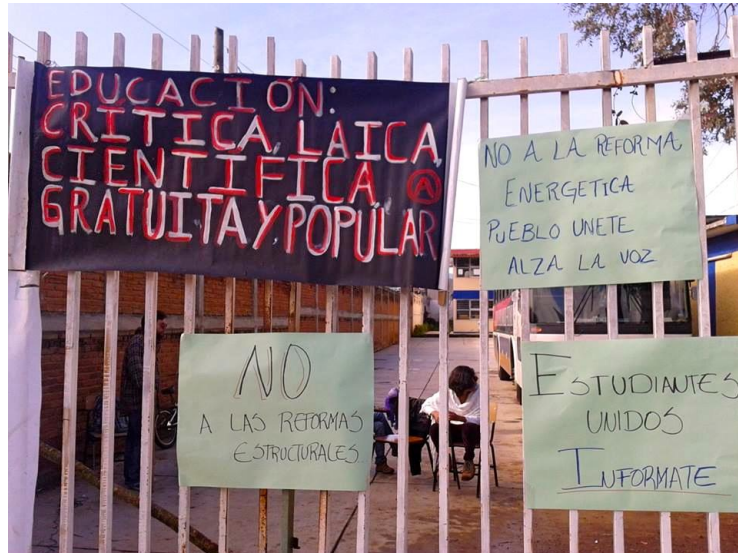 EDUCACIÓN:
CRÍTICA, LAICA,
CIENTIFICA
GRATUITA Y POPULAR
NO A LA REFORMA
ENERGETICA
PUEBLO UNETE
ALZA LA VOZ
NO
A LAS REFORMAS
ESTRUCTURALES
ESTUDIANTES
UNIDOS
INFORMATE